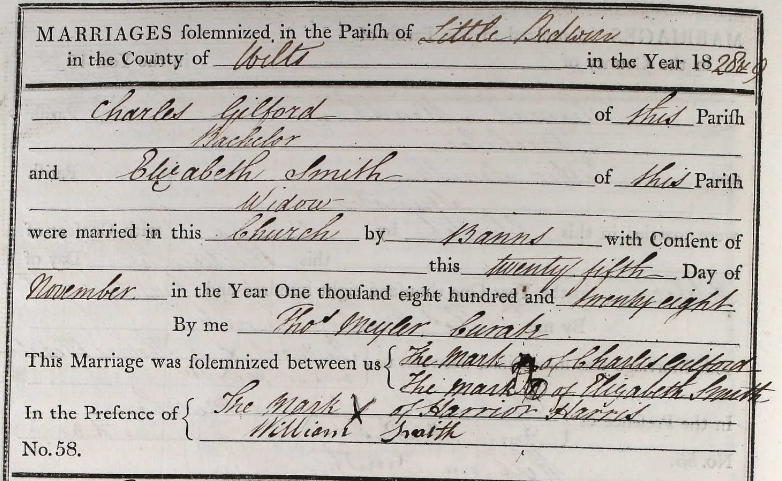 MARRIAGES solemnized in the Parish of Little Bedwin
in the County of Wilts in the Year 1828 & 9
Charles Gilford of this Parish
Bachelor
and Elizabeth Smith of this Parish
Widow
were married in this Church by Banns with Consent of
this twenty fifth Day of
November in the Year One thousand eight hundred and twenty eight
By me Thos Meyler Curate
This Marriage was solemnized between us { The Mark of Charles Gilford
The mark of Elizabeth Smith
In the Presence of { The Mark X of Harrior Harris
William Smith
No. 58.